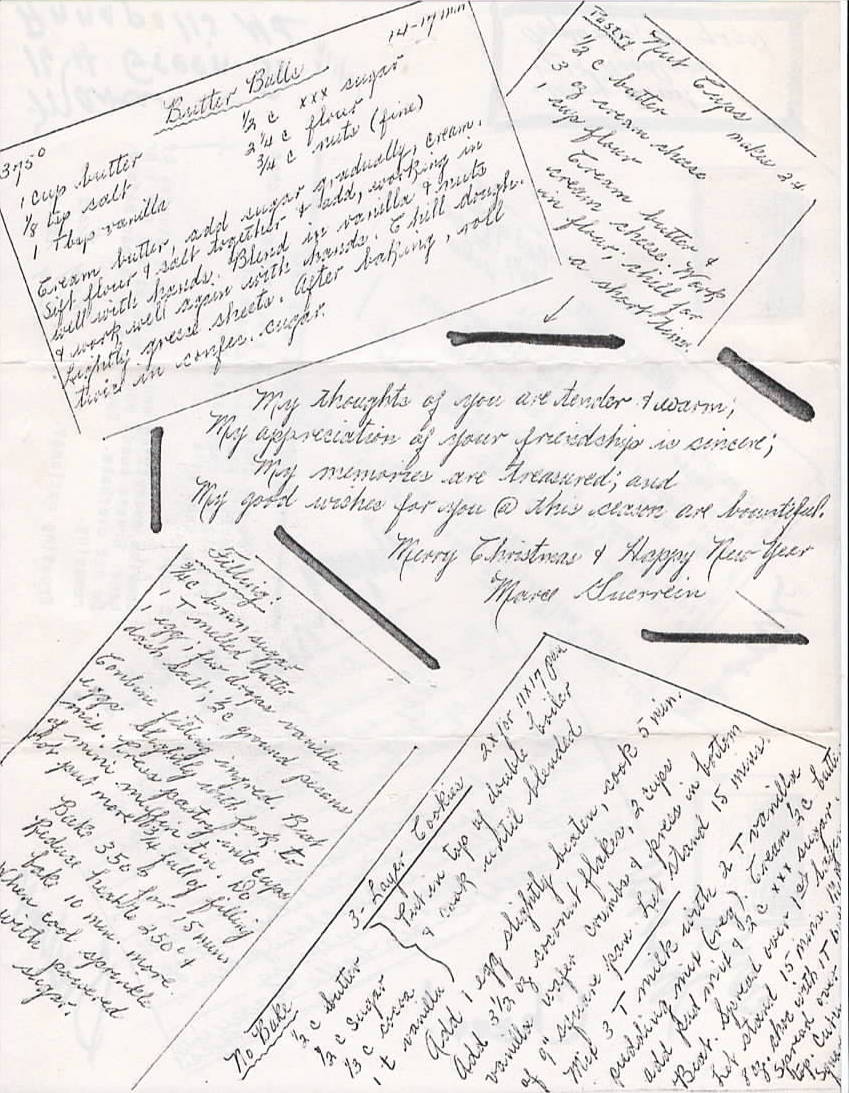 Butter Balls
14-17 min
375°
1 cup butter
1/8 tsp salt
1 Tbsp vanilla
1/2 c xxx sugar
2 1/4 c flour
3/4 c nuts (fine)
Cream butter, add sugar gradually, cream.
Sift flour & salt together & add, working in
well with hands. Blend in vanilla & nuts
& work well again with hands. Chill dough.
Lightly grease sheets. After baking, roll
twice in confec. sugar.
Pastry Nut Cups makes 24
1/2 c butter
3 oz cream cheese
1 cup flour
Cream butter &
cream cheese. Work
in flour; chill for
a short time.
My thoughts of you are tender & warm;
My appreciation of your friendship is sincere;
My memories are treasured; and
My good wishes for you @ this season are bountiful.
Merry Christmas & Happy New Year
Marce Guerrein
Filling:
3/4 c brown sugar
1 T melted butter
1 egg, few drops vanilla
dash salt, 1/2 c ground pecans
Combine filling ingred. Beat
eggs slightly with fork to
mix. Press pastry into cups
of mini muffin tin. Do
not put more 3/4 full of filling
Bake 350° for 15 mins.
Reduce heat to 250° &
bake 10 min. more.
When cool sprinkle
with powdered
sugar.
No Bake 3-Layer Cookies 2X for 11X17 pan
1/2 c butter
1/2 c sugar
1/3 c cocoa
1 t vanilla
Put in top of double boiler
& cook until blended
Add 1 egg slightly beaten, cook 5 min.
Add 3 1/2 oz coconut flakes, 2 cups
vanilla wafer crumbs & press in bottom
of 9" square pan. Let stand 15 mins.
Mix 3 T milk with 2 T vanilla
pudding mix (reg). Cream 1/2 c butter
add pud mix & 2 c xxx sugar.
Beat. Spread over 1st layer
let stand 15 mins.
8 oz. choc with 1 T
Spread over
top. Cut